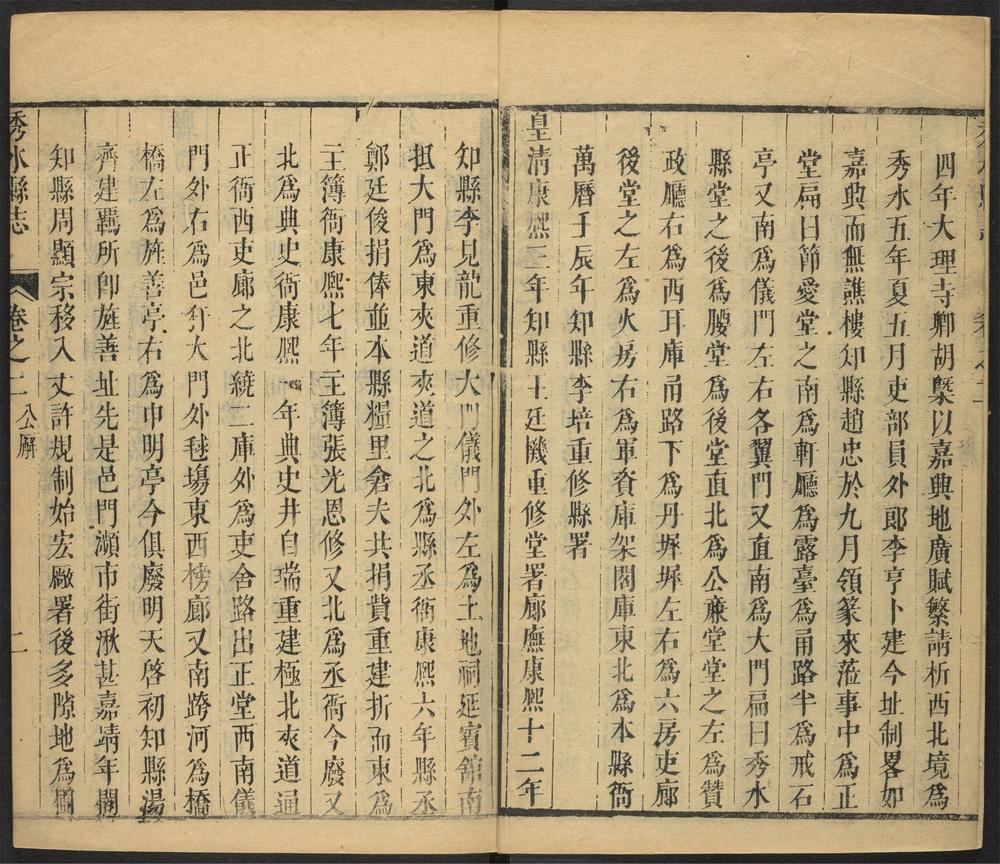 四年大理寺卿胡槩以嘉興地廣賦繁請析西北境爲
秀水五年夏五月吏部員外郎李亨卜建今址制畧如
嘉興而無譙樓知縣趙忠於九月領篆來蒞事中爲正
堂扁曰節愛堂之南爲軒廳爲露臺爲甬路半爲戒石
亭又南爲儀門左右各翼門又直南爲大門扁曰秀水
縣堂之後爲腰堂爲後堂直北爲公廉堂堂之左爲贊
政廳右爲西耳庫甬路下爲丹墀墀左右爲六房吏廊
後堂之左爲火房右爲軍資庫架閣庫東北爲本縣衙
萬曆壬辰年知縣李培重修縣署
皇清康熙三年知縣王廷機重修堂署廊廡康熙十二年
知縣李見龍重修大門儀門外左爲土地祠延賓舘南
抵大門爲東夾道夾道之北爲縣丞衙康熙六年縣丞
鄭廷俊捐俸並本縣糧里倉夫共捐貲重建折而東爲
主簿衙康熙七年主簿張光恩修又北爲丞衙今廢又
北爲典史衙康熙 年典史井自瑞重建極北夾道通
正衙西吏廊之北繞二庫外爲吏舍路出正堂西南儀
門外右爲邑犴大門外毬場東西榜廊又南跨河爲橋
橋左爲旌善亭右爲申明亭今俱廢明天啓初知縣湯
齊建羈所卽旌善址先是邑門瀕市街湫甚嘉靖年間
知縣周顯宗移入丈許規制始宏厰署後多隙地爲圃
秀水縣志 卷之二 公廨 二